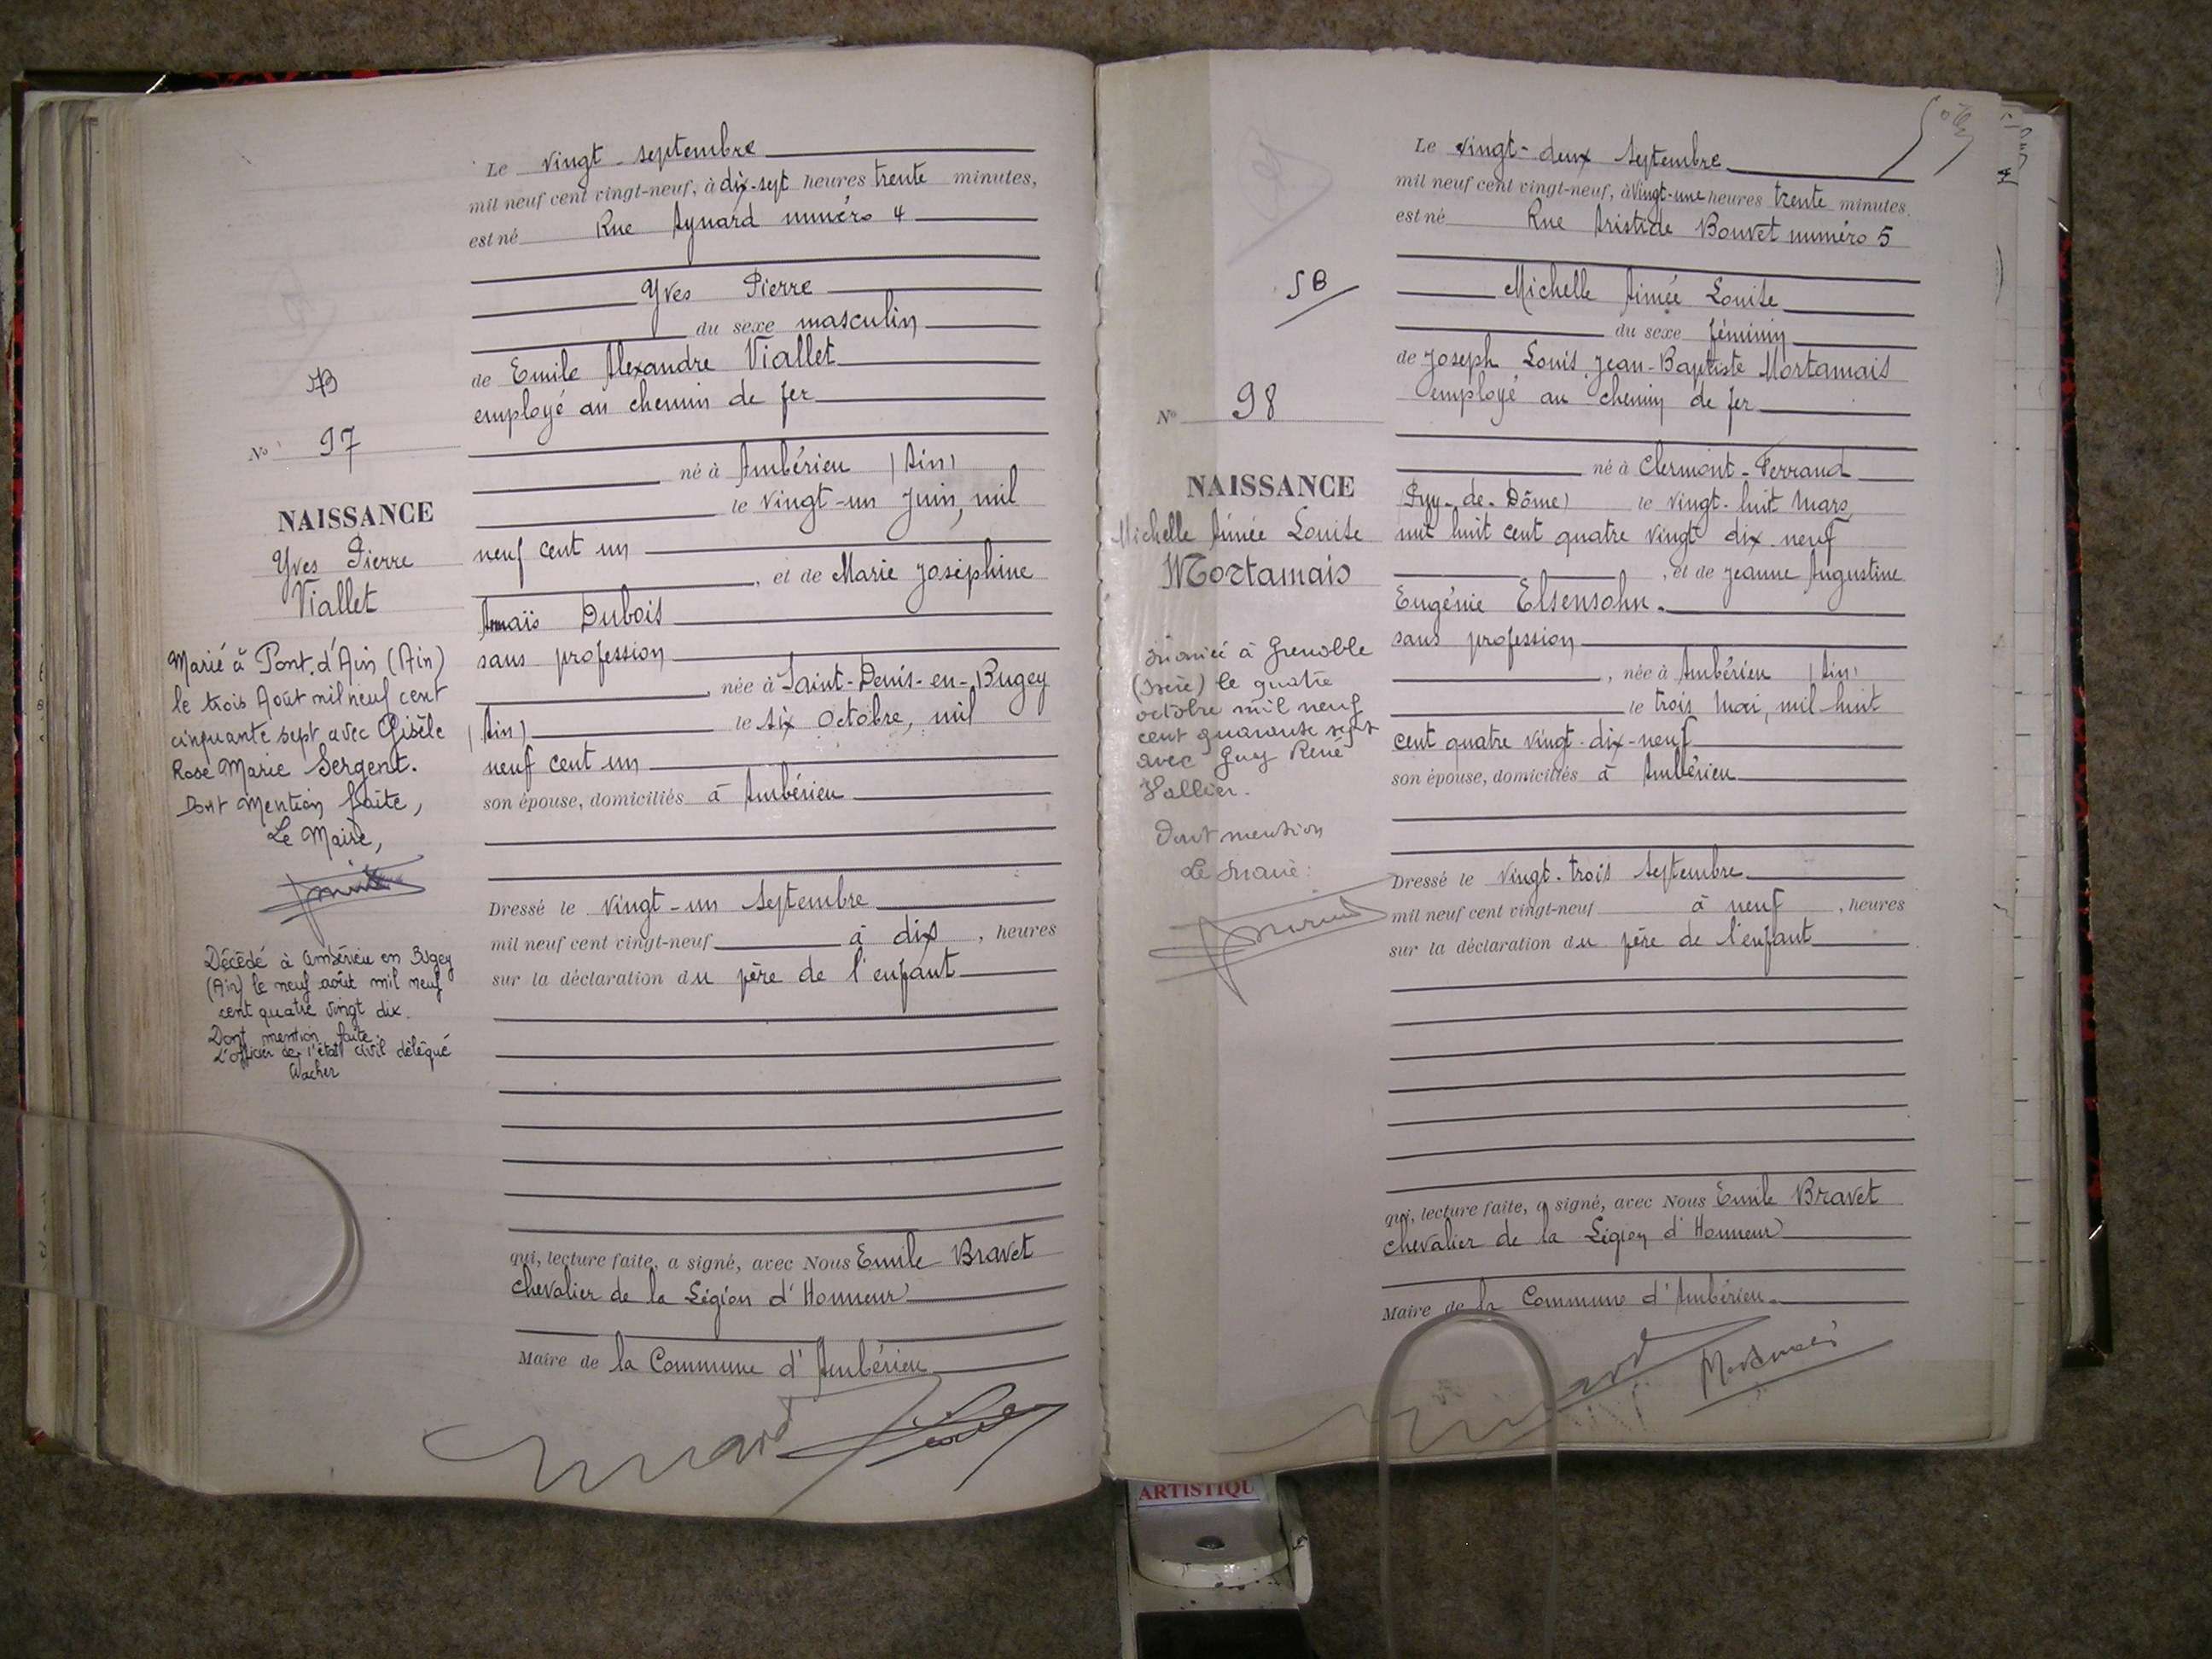 N° 97
NAISSANCE
Yves Pierre
Viallet
Marié à Pont d'Ain (Ain)
le trois Août mil neuf cent
cinquante sept avec Gisèle
Rose Marie Sergent.
Dont Mention faite,
Le Maire,
Décédé à Ambérieu en Bugey
(Ain) le neuf août mil neuf
cent quatre vingt dix.
Dont mention faite.
L'officier de l'état civil délégué
Le vingt-septembre
mil neuf cent vingt-neuf, à dix-sept heures trente minutes,
est né Rue Aynard numéro 4
Yves Pierre
du sexe masculin
de Emile Alexandre Viallet
employé au chemin de fer
né à Ambérieu (Ain)
le vingt-un Juin, mil
neuf cent un
, et de Marie Joséphine
Anaïs Dubois
sans profession
, née à Saint-Denis-en-Bugey
(Ain) le six Octobre, mil
neuf cent un
son épouse, domiciliés à Ambérieu
Dressé le vingt-un septembre
mil neuf cent vingt-neuf à dix , heures
sur la déclaration du père de l'enfant
qui, lecture faite, a signé, avec Nous Emile Bravet
chevalier de la Légion d'Honneur
Maire de la Commune d'Ambérieu
SB
N° 98
NAISSANCE
Michelle Aimée Louise
Mortamais
Mariée à Grenoble
(Isère) le quatre
octobre mil neuf
cent quarante sept
avec Guy René
Vallier.
Dont mention
Le Maire:
Le vingt-deux septembre
mil neuf cent vingt-neuf, à vingt-une heures trente minutes,
est né Rue Aristide Bouvet numéro 5
Michelle Aimée Louise
du sexe féminin
de Joseph Louis Jean-Baptiste Mortamais
employé au chemin de fer
né à Clermont-Ferrand
(Puy-de-Dôme) le vingt-huit Mars
mil huit cent quatre vingt dix-neuf
, et de Jeanne Augustine
Eugénie Elsensohn.
sans profession
, née à Ambérieu (Ain)
le trois Mai, mil-huit
cent quatre vingt-dix-neuf
son épouse, domiciliés à Ambérieu
Dressé le vingt-trois septembre
mil neuf cent vingt-neuf à neuf , heures
sur la déclaration du père de l'enfant
qui, lecture faite, a signé, avec Nous Emile Bravet
chevalier de la Légion d'Honneur
Maire de la Commune d'Ambérieu.
Mortamais
ARTISTIQU